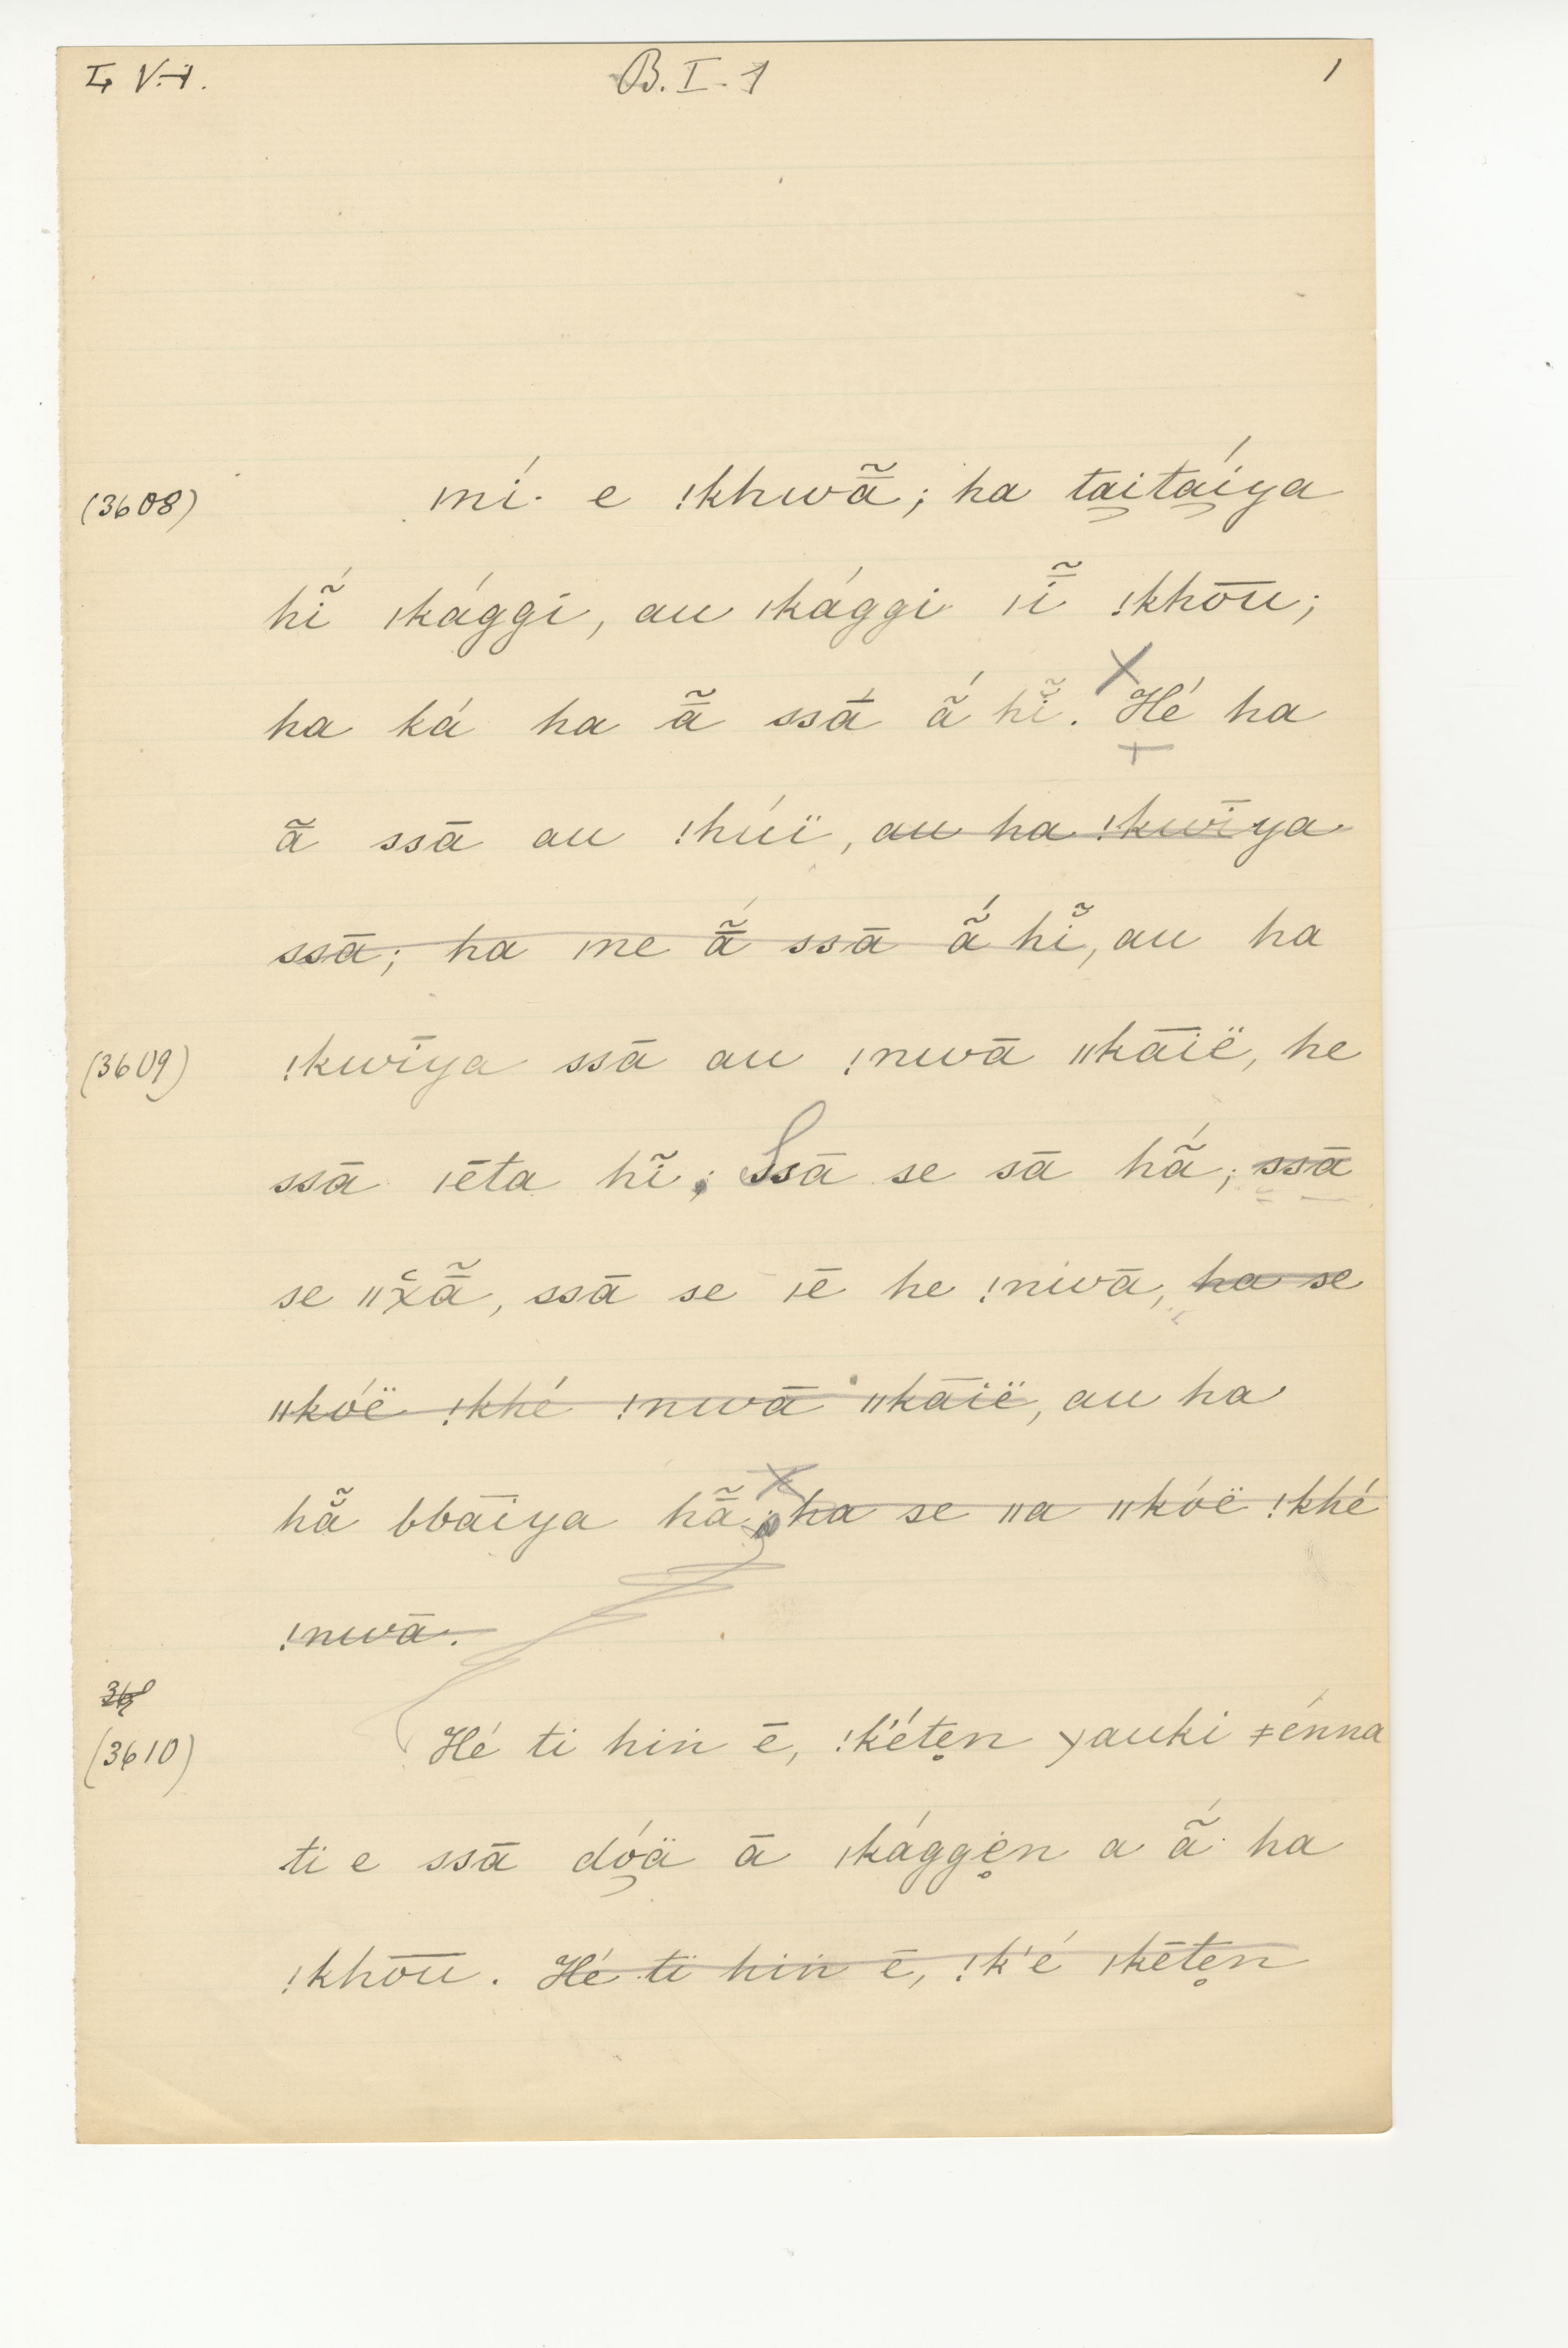 B. I - 1
1
(3608) ǀní e ǃkhwã̄; ha ta̮ita̮íya
hĩ́ ǀkággĩ, au ǀkággi ǀĩ̄ ǃkhō͞u;
ha ká ha ã̄ ssā́ ã́ hĩ. Hé ha
ã̄ ssā au ǃhúï, au ha ǃkwīya
ssā; ha ǀne ã̄́ ssā ã́ hĩ, au ha
(3609) ǃkwīya ssā au ǃnwā ǁkāïë, he
ssā ǀēta hĩ; Ssā se sā hã́; ssā
se ǁx̆ã̄, ssā se ǀē he ǃnwā, ha se
ǁkóë ǃkhé ǃnwā ǁkāïë, au ha
hã bbāiya hã̄; ha se ǁa ǁkóë ǃkhé
ǃnwā.
(3610) Hé ti hiṅ ē, ǃk'éte̥n χauki ǂénna
ti e ssā dó̮ä ā ǀkágge̥n a ã́ ha
ǃkhō͞u. Hé ti hiṅ ē, ǃk'é ǀkēte̥n